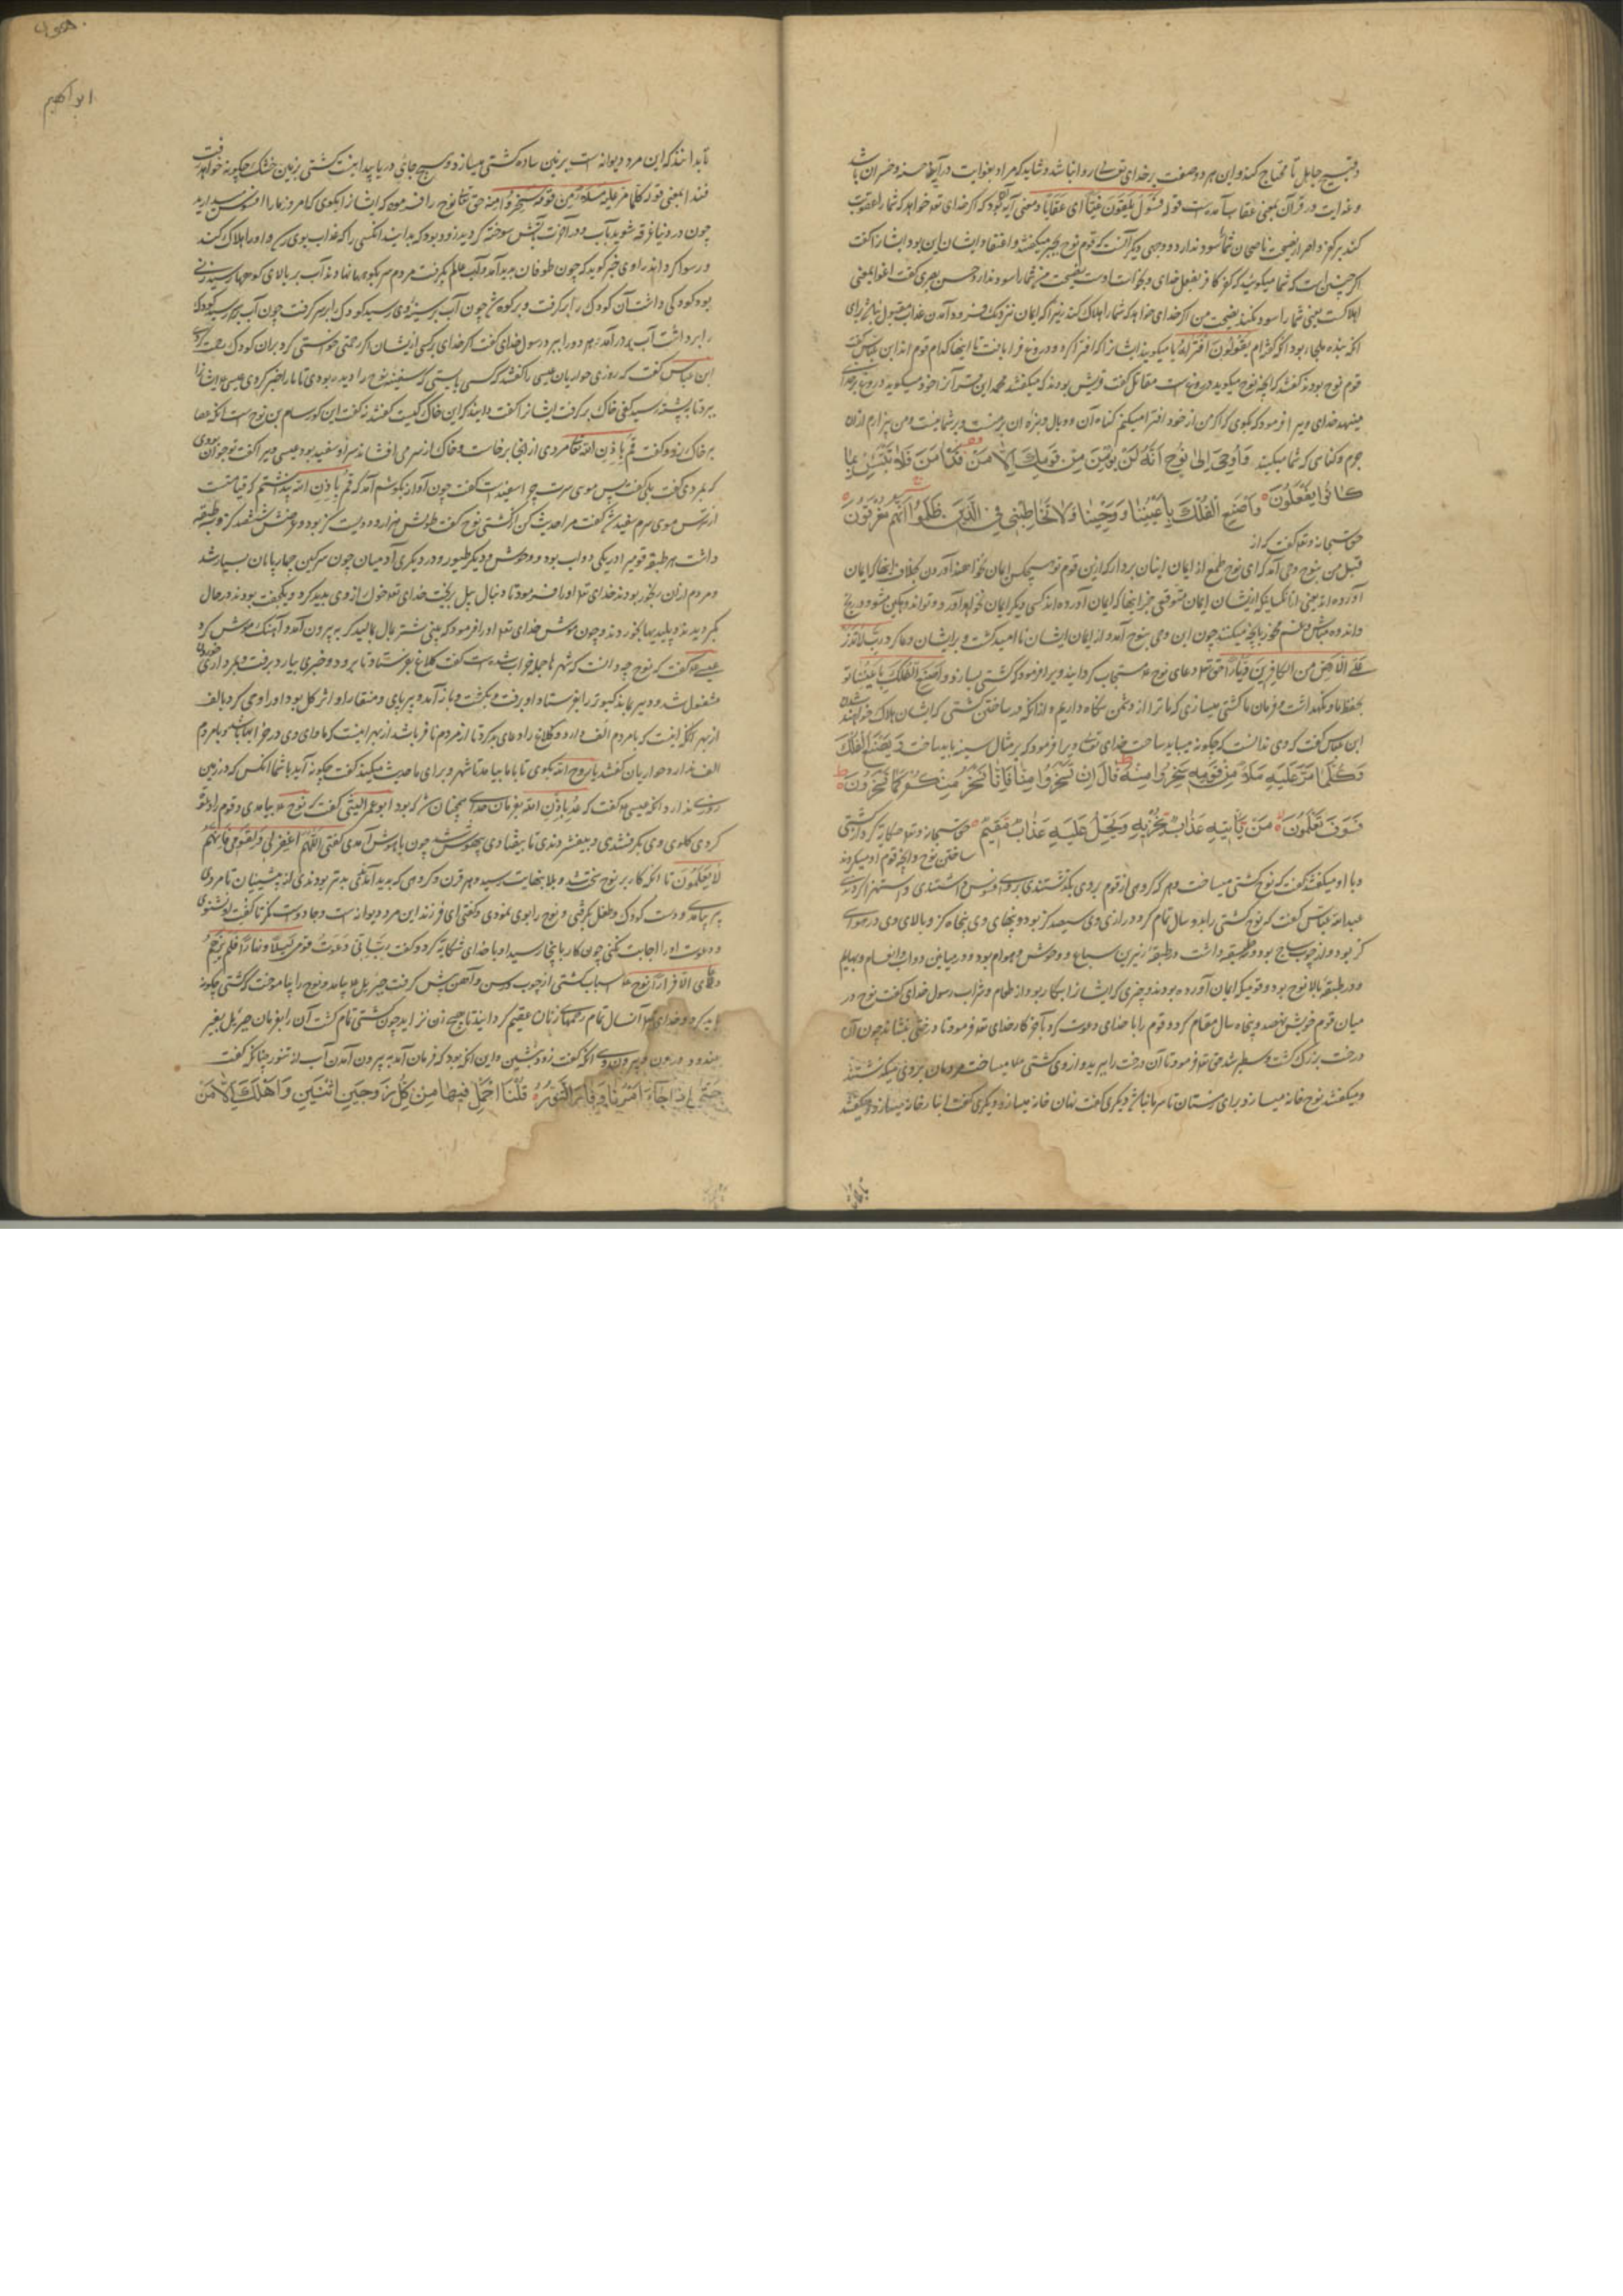 وقبیح جاهل یا محتاج کند و این هر دو صفت بر خدای تعالی روا نباشد و شاید که مراد بغوایت در آیه
و غوایت در قرآن بمعنی عقاب آمده است قوله فسوف یلقون غیا ای عقابا و معنی آیه که اگر خدای تعه خواهد که شما را عقوبت
کند بر کفر و اصرار نصیحت ناصحان شما را سود ندارد و وجهی دیگر آنست که قوم نوح بجبر میگفتند و اعتقاد ایشان این بود ایشانرا گفت
اگر چنین است که شما میگویید که کفر کافر بفعل خدای و بخواست اوست نصیحت من شما را سود ندارد و حسن بصری گفت اغوا بمعنی
اهلاکست یعنی شما را سود نکند نصیحت من اگر خدای خواهد که شما را هلاک کند زیرا که ایمان نزدیک فرود آمدن عذاب مقبول نباشد برای
آنکه بنده ملجا بود ام یقولون افتریه یا میگویند ایشان که افترا کرد و دروغ فرا بافت
قوم نوح بودند گفتند که آنچه نوح میگوید دروغ است مقاتل گفت قریش بودند که میگفتند محمد این قرآن از خود میگوید
خدای ویرا فرمود که بگوی که اگر من از خود افترا میکنم گناه آن و وبال بر من است و بر شما نیست و من بیزارم از آن
جرم و گناهی که شما میکنید وَأُوحِيَ إِلَى نُوحٍ أَنَّهُ لَنْ يُؤْمِنَ مِنْ قَوْمِكَ إِلَّا مَنْ قَدْ آمَنَ فَلَا تَبْتَئِسْ بِمَا
كَانُوا يَفْعَلُونَ وَاصْنَعِ الْفُلْكَ بِأَعْيُنِنَا وَوَحْيِنَا وَلَا تُخَاطِبْنِي فِي الَّذِينَ ظَلَمُوا إِنَّهُمْ مُغْرَقُونَ
حق سبحانه و تعه گفت که از
قبل من بنوح وحی آمد که ای نوح طمع از ایمان اینان بردار که ازین قوم تو هیچکس ایمان نخواهند آوردن بخلاف اینها که ایمان
آورده اند یعنی از آنکسانیکه ازیشان ایمان متوقعی جز اینها که ایمان آورده اند کسی دیگر ایمان نخواهد آورد
و اندوه مباش و غم مخور بآنچه میکنند چون این وحی بنوح آمد و از ایمان ایشان ناامید گشت و بر ایشان دعا کرد رب لا تذر
علی الارض من الکافرین دیارا حق تعه دعای نوح مستجاب گردانید ویرا فرمود که کشتی بساز و اصنع الفلک باعیننا تو
بحفظ ما و نگهداشت و فرمان ما کشتی میسازی که ما ترا از دشمن نگاه داریم
ابن عباس گفت که وی ندانست که چگونه میباید ساخت خدای تعالی ویرا فرمود که بر مثال سینه باید ساخت وَيَصْنَعُ الْفُلْكَ
وَكُلَّمَا مَرَّ عَلَيْهِ مَلَأٌ مِنْ قَوْمِهِ سَخِرُوا مِنْهُ قَالَ إِنْ تَسْخَرُوا مِنَّا فَإِنَّا نَسْخَرُ مِنْكُمْ كَمَا تَسْخَرُونَ
فَسَوْفَ تَعْلَمُونَ مَنْ يَأْتِيهِ عَذَابٌ يُخْزِيهِ وَيَحِلُّ عَلَيْهِ عَذَابٌ مُقِيمٌ حق سبحانه و تعه حکایة کرد از کشتی
ساختن نوح و آنچه قوم او میکردند
و با او میگفتند گفت که نوح کشتی میساخت و هر که گروهی از قوم بر وی بگذشتندی بر وی افسوس داشتندی و استهزا کردندی
عبدالله عباس گفت که نوح کشتی را بدو سال تمام کرد درازی وی سیصد گز بود و پهنای وی پنجاه گز و بالای وی در هوا سی
گز بود و از چوب ساج بود و سه طبقه داشت در طبقه زیرین سباع و وحوش و هوام بود و در میانین دواب و انعام و بهایم
و در طبقه بالا نوح بود و قومیکه ایمان آورده بودند و چیزی که ایشانرا بکار بود از طعام و شراب رسول خدای گفت نوح در
میان قوم خویش نهصد و پنجاه سال مقام کرد و قوم را با خدای دعوت کرد بآخر کار خدای تعه فرمود تا درختی بنشاند چون آن
درخت بزرگ گشت و سطبر شد حق تعه فرمود تا آن درخت را ببرید و از وی کشتی میساخت مردمان بر وی میگذشتند
و میگفتند نوح خانه میسازد برای زمستان تا سرما نباشد دیگری گفت نهان خانه میسازد و دیگری گفت انبار خانه میسازد و میگفتند
ابراهیم
بدانند که این مرد دیوانه است بر زمین ساده کشتی میسازد و هیچ جای دریا پیدا نیست کشتی بر زمین خشک چگونه خواهد رفت
قوله کلما مر علیه ملأ من قومه سخروا منه حق تعالی نوح را فرمود که ایشانرا بگوی که امروز ما را افسوس میدارید
چون در دنیا غرقه شوید بآب و در آخرت بآتش سوخته گردید زود بود که بدانید آنکسی را که عذاب بوی رسد و او را هلاک کند
و رسوا گرداند راوی خبر گوید که چون طوفان پدید آمد و آب عالم بگرفت مردم سر بکوهها نهادند آب بر بالای کوهها رسید زنی
بود کودکی داشت آن کودک را برگرفت و بر کوه شد چون آب بر سینه وی رسید کودک را بر سر گرفت چون آب بسر رسید کودک
را برداشت آب درآمد و هر دو را ببرد رسول خدای گفت اگر خدای بر کسی ازیشان رحمتی خواستی کرد بران کودک رحمت کردی
ابن عباس گفت که روزی حواریان عیسی را گفتند که کسی بایستی که سفینه نوح را دیده بودی تا ما را خبر کردی عیسی ایشانرا
ببرد تا به پشته رسید کفی خاک برگرفت ایشانرا گفت دانید که این خاک کیست گفتند نه گفت این گور سام بن نوح است آنگه عصا
بر خاک زد و گفت قم باذن الله تعالی مردی از آنجا برخاست و خاک از سر می افشاند سر او سفید بود عیسی ویرا گفت تو جوان بودی
که بمردی گفت بلی گفت پس موی سرت چرا سفید است گفت چون آواز بگوشم آمد که قم باذن الله پنداشتم که قیامت است
از ترس موی سرم سفید شد گفت مرا حدیث کن از کشتی نوح گفت طولش هزار و دویست گز بود و عرضش ششصد گز و سه طبقه
داشت هر طبقه قومی را در یکی دواب بود و وحوش و دیگر طیور و در دیگری آدمیان چون سرگین چهارپایان بسیار شد
و مردم ازان رنجور بودند خدای تعه او را فرمود تا دنبال پیل
عیسی گفت که نوح چه دانست که شهرها جمله خراب شده است گفت کلاغ بفرستاد تا برود و خبری بیارد برفت و بمرداری
مشغول شد و دیر بماند کبوتر را بفرستاد او برفت و بگشت و باز آمد و بر پای و منقار او اثر گل بود او را دعا کرد بالف
حواریان گفتند یا روح الله بگوی تا با ما بیاید تا شهر و برای ما حدیث میکند گفت چگونه آید با شما آنکس که در زمین
روزی ندارد آنگه عیسی گفت عد باذن الله بفرمان خدای همچنان شد که بود ابو عمر اللیثی گفت که نوح بیامدی و قوم را دعوت
کردی گلوی وی بگرفتندی و بیفشردندی تا بیفتادی بیهوش چون باهوش آمدی گفتی اللهم اغفر لی و لقومی فانهم
لا یعلمون تا آنکه کار بر نوح سخت شد و بلا بنهایت رسید و هر قرن و گروهی که پدید آمدندی بدتر بودندی از پیشینیان تا مردی
پیر بیامدی و دست کودک و طفل گرفتی و نوح را بوی نمودی و گفتی ای فرزند این مرد دیوانه است و جادوست
و دعوت او را اجابت نکنی چون کار باینجا رسید او با خدای شکایة کرد و گفت رب انی دعوت قومی لیلا و نهارا فلم یزدهم
دعای الا فرارا نوح اسباب کشتی از چوب و رسن و آهن پیش گرفت جبرئیل بیامد و نوح را بیاموخت که کشتی چگونه
باید کرد و خدای تعه آنسال تمام رحمهای زنان عقیم گردانید تا هیچ زن نزاید چون کشتی تمام گشت آن را بفرمان جبرئیل بقیر
بیندود درون و بیرون وی آنگه گفت زود بنشین و این آنگه بود که فرمان آمد به بیرون آمدن آب از تنور چنانکه گفت
حَتَّى إِذَا جَاءَ أَمْرُنَا وَفَارَ التَّنُّورُ قُلْنَا احْمِلْ فِيهَا مِنْ كُلٍّ زَوْجَيْنِ اثْنَيْنِ وَأَهْلَكَ إِلَّا مَنْ